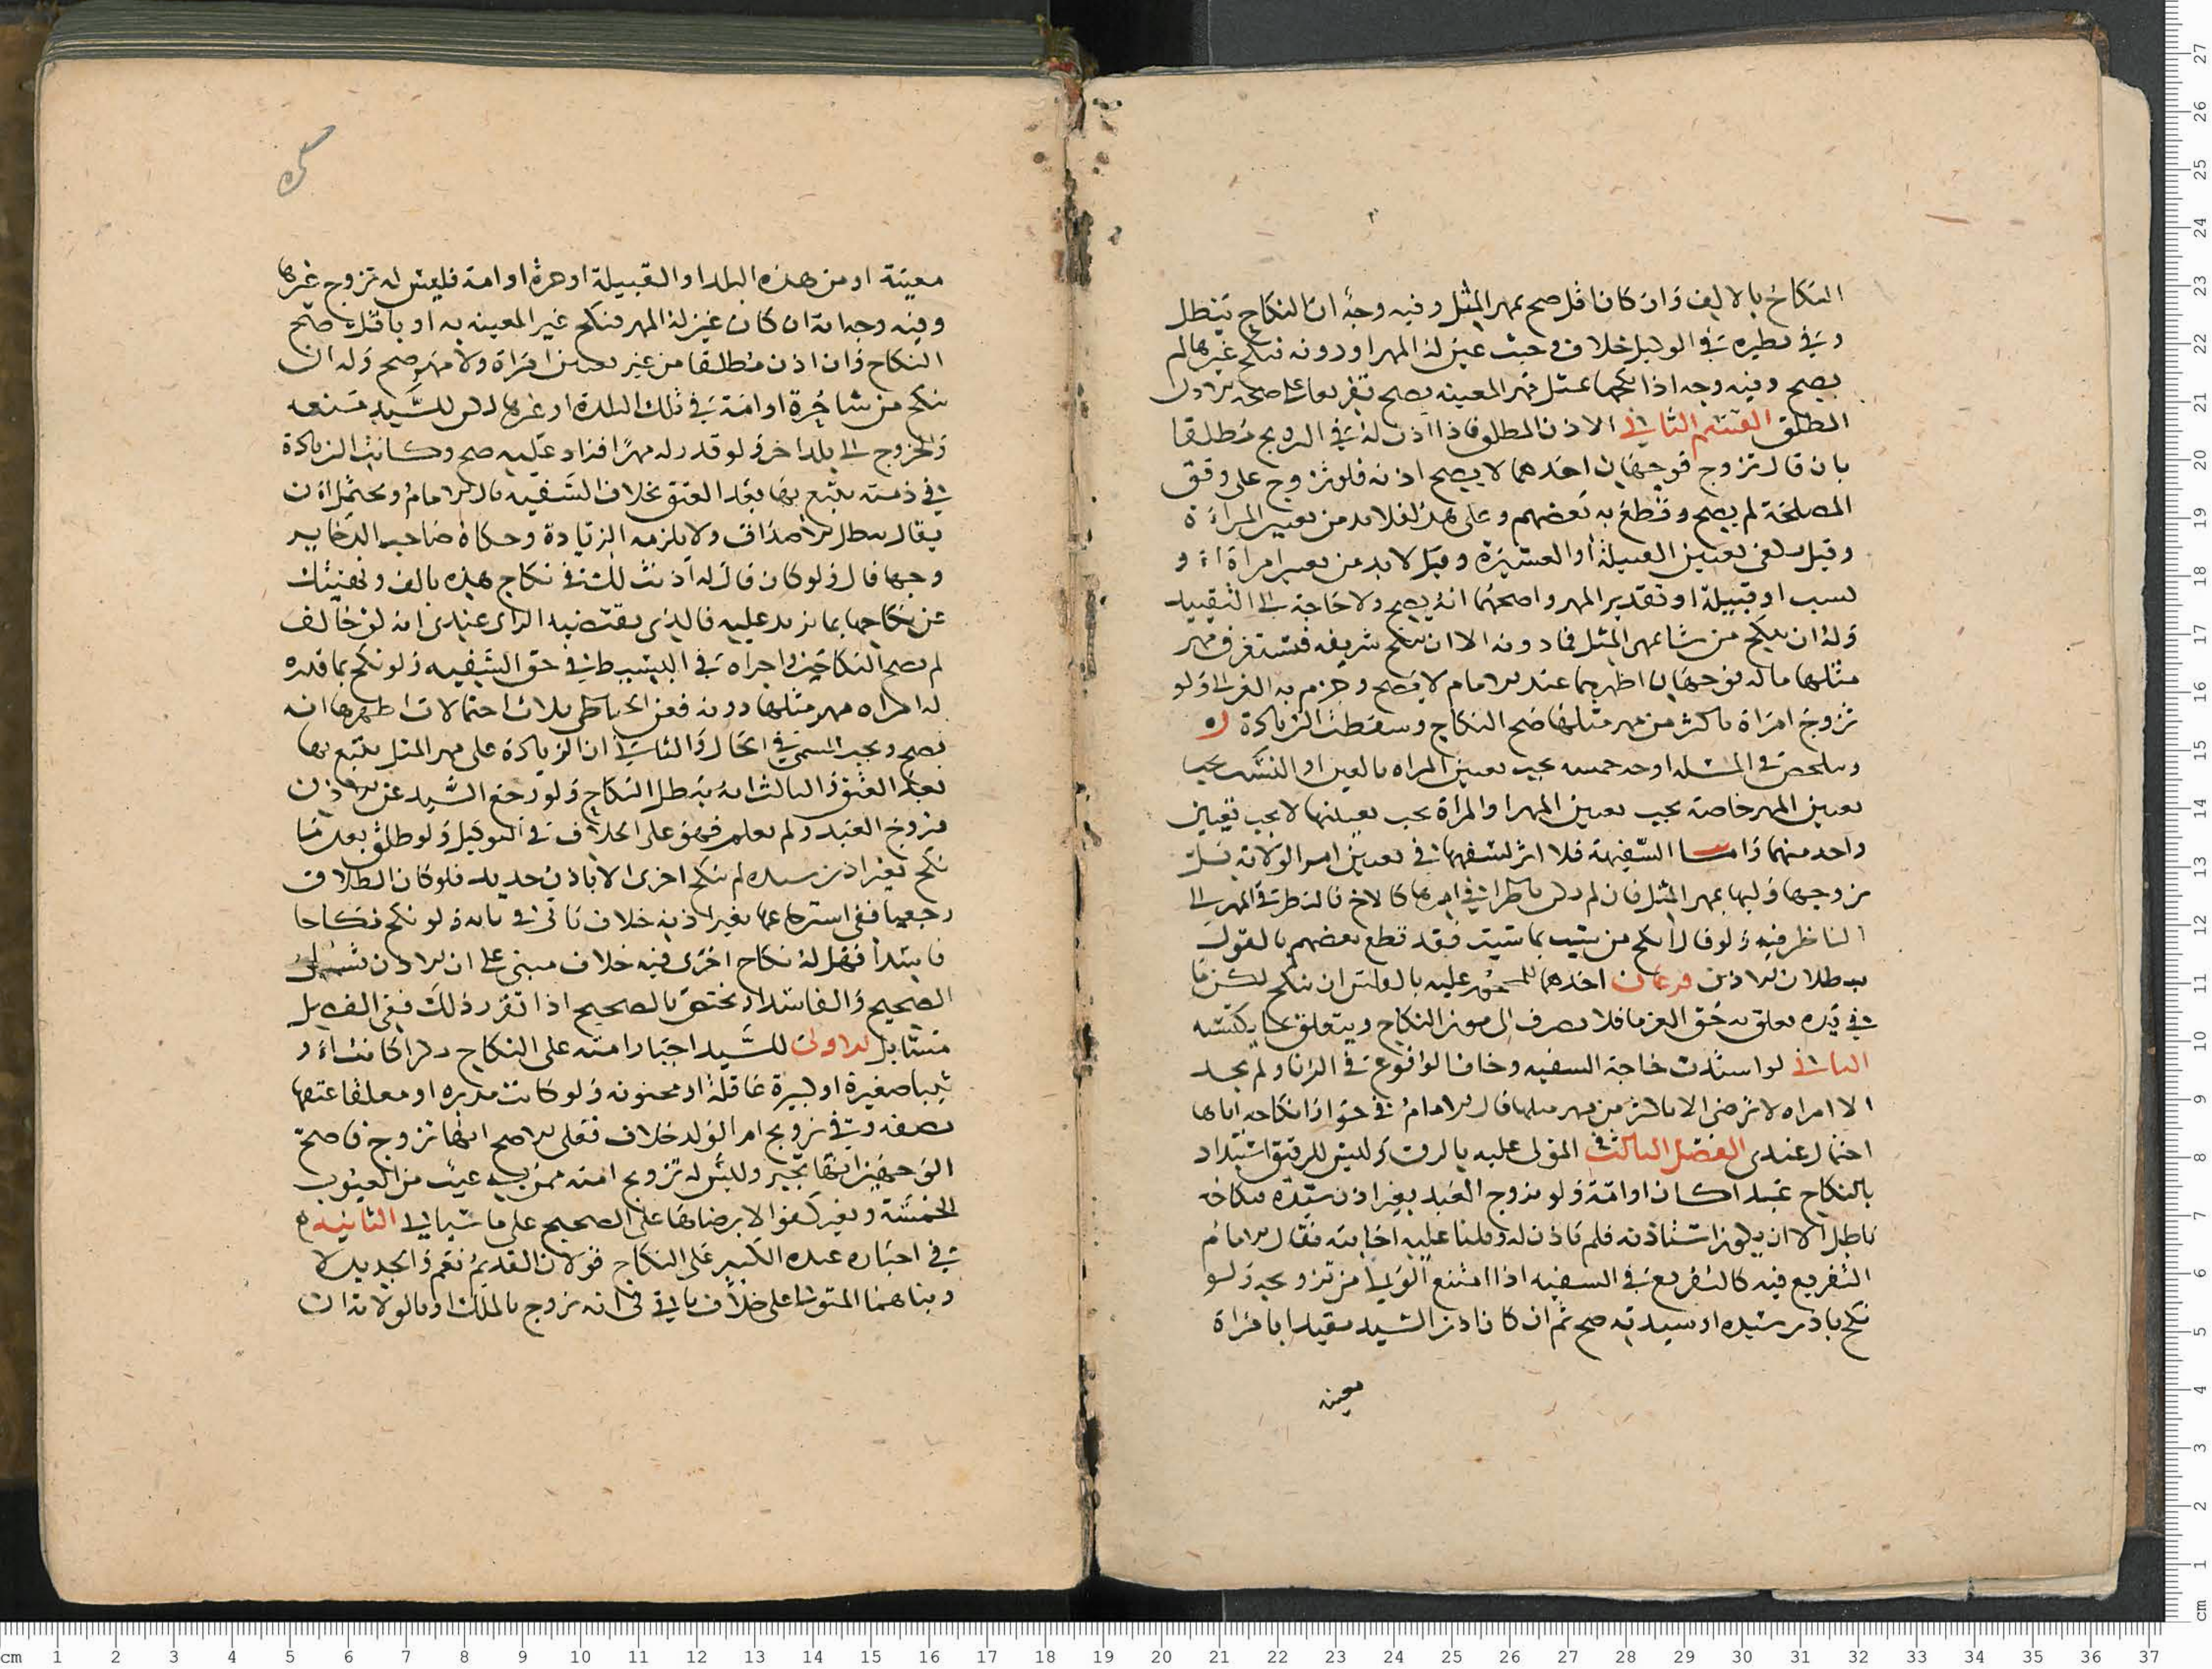 النكاح بالالف وان كان اقل صح بمهر المثل وفيه وجه ان النكاح يبطل
وفي نظيره في الوكيل خلاف وحيث عين له المهر او دونه فنكح غيرها لم
يصح وفيه وجه اذا نكحها بمثل مهر المعينه يصح تفريعا على صحه الاذن
المطلق القسم الثاني الاذن المطلق فاذا اذن له في التزويج مطلقا
بان قال تزوج فوجهان احدهما لا يصح اذنه فلو تزوج على وفق
المصلحة لم يصح وقطع به بعضهم وعلى هذا فلا بد من تعيين المراة
وقيل يكفي تعيين القبيلة او العشيرة وقيل لا بد من تعيين امراة او
نسب او قبيلة او تقدير المهر واصحهما انه يصح ولا حاجة الى التقييد
وله ان ينكح من شا بمهر المثل فما دونه الا ان ينكح شريفه فيستغرق مهر
مثلها ماله فوجهان اظهرهما عند الامام لا يصح وجزم به الغزالي ولو
تزوج امراة باكثر من مهر مثلها صح النكاح وسقطت الزيادة
وتلخص في المسله اوجه خمسه يجب تعيين المراه بالعين او النسب يجب
تعيين المهر خاصة يجب تعيين المهر او المراة يجب تعيينهما لا يجب تعيين
واحد منهما واما السفيهة فلا اثر لسفهها في تعيين امر الولاية بل
يزوجها وليها بمهر المثل فان لم يكن ناظرا في امرها كالاخ فالنظر في المهر الى
الناظر فيه ولو قال انكح من شيت بما شيت فقد قطع بعضهم بالقول
ببطلان الاذن فرعان احدهما للمحجور عليه بالفلس ان ينكح لكن ما
في يده تعلق به حق الغرما فلا يصرف الى مون النكاح ويتعلق بما يكتسبه
الثاني لو اشتدت حاجة السفيه وخاف الوقوع في الزنا ولم يجد
الا امراه لا ترضى الا باكثر من مهر مثلها قال الامام في جواز انكاحه اياها
احتمال عندي الفصل الثالث في المولى عليه بالرق وليس للرقيق استبداد
بالنكاح عبدا كان او امة ولو تزوج العبد بغير اذن سيده فنكاحه
باطل الا ان يكون استاذنه فلم ياذن له وقلنا عليه اجابته فقال الامام
التفريع فيه كالتفريع في السفيه اذا امتنع الولي من تزويجه ولو
نكح باذن سيده او سيدته صح ثم ان كان اذن السيد مقيدا بامراة
معينه
معينة او من هذه البلد او القبيلة او حرة او امة فليس له تزوج غيرها
وفيه وجه انه ان كان عين له المهر فنكح غير المعينه به او باقل صح
النكاح وان اذن مطلقا من غير تعيين امراة ولا مهر صح وله ان
ينكح من شا حرة او امة في تلك البلدة او غيرها لكن للسيد منعه
والخروج الى بلد اخر ولو قدر له مهرا فزاد عليه صح وكانت الزيادة
في ذمته يتبع بها بعد العتق بخلاف السفيه قال الامام ويحتمل ان
يقال يبطل الاصداق ولا يلزمه الزيادة وحكاه صاحب الذخاير
وجها قال ولو كان قال له اذنت لك في نكاح هذه بالف ونهيتك
عن نكاحها بما يزيد عليه فالذي يقتضيه الراي عندي انه لو خالف
لم يصح النكاح واجراه في البسيط في حق السفيه ولو نكح بما قدره
له امراه مهر مثلها دونه فعن الحناطي ثلاث احتمالات اظهرها انه
يصح ويجب المسمى في الحال والثاني ان الزيادة على مهر المثل يتبع بها
بعد العتق والثالث انه يبطل النكاح ولو رجع السيد عن الاذن
فتزوج العبد ولم يعلم فهو على الخلاف في التوكيل ولو طلق بعد ما
نكح بغير اذن سيده لم ينكح اخرى الا باذن جديد فلو كان الطلاق
رجعيا ففي استرجاعها بغير اذنه خلاف ياتي في بابه ولو نكح نكاحا
فاسدا فهل له نكاح اخرى فيه خلاف مبني على ان الاذن يشمل
الصحيح والفاسد او يختص بالصحيح اذا تقرر ذلك ففي الفصل
مسايل الاولى للسيد اجبار امته على النكاح بكرا كانت او
ثيبا صغيرة او كبيرة عاقلة او مجنونه ولو كانت مدبره او معلقا عتقها
بصفه وفي تزويج ام الولد خلاف فعلى الاصح انها تزوج فاصح
الوجهين انها تجبر وليس له تزويج امته ممن به عيب من العيوب
الخمسة وبغير كفوا الا برضاها على الصحيح على ما سياتي الثانيه
في اجباره عبده الكبير على النكاح قولان القديم نعم والجديد لا
وبناهما المتولي على خلاف ياتي في انه يزوج بالملك او بالولاية ان